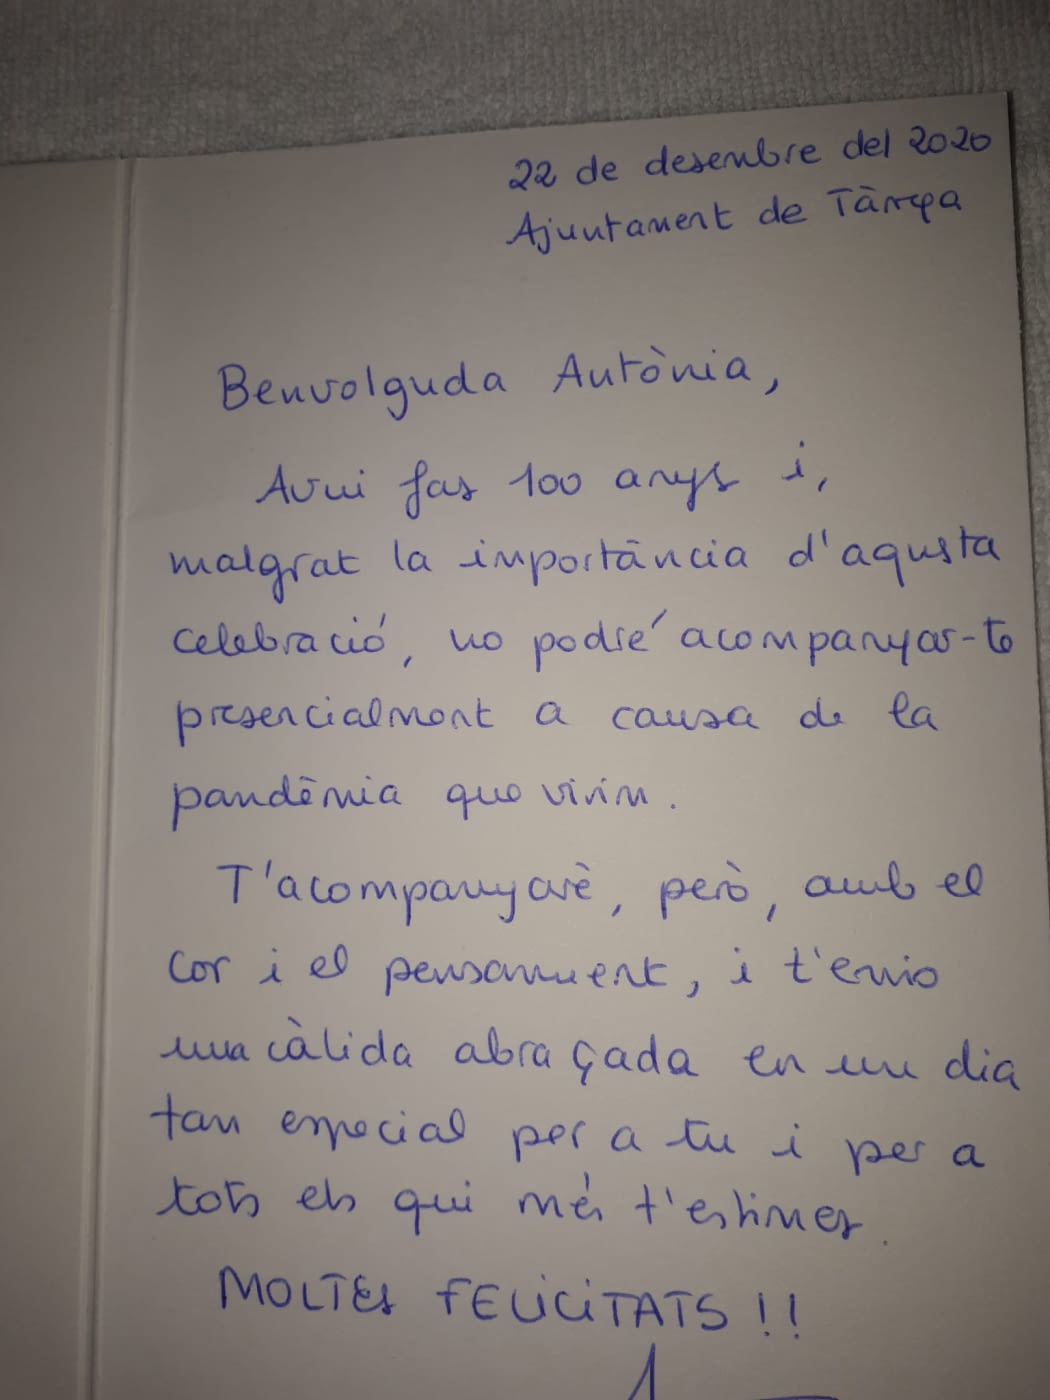 22 de desembre del 2020
Ajuntament de Tàrrega
Benvolguda Antònia,
Avui fas 100 anys i,
malgrat la importància d'aqusta
celebració, no podré acompanyar-te
presencialment a causa de la
pandèmia que vivim.
T'acompanyaré, però, amb el
cor i el pensament, i t'envio
una càlida abraçada en un dia
tan especial per a tu i per a
tots els qui més t'estimes.
MOLTES FELICITATS!!